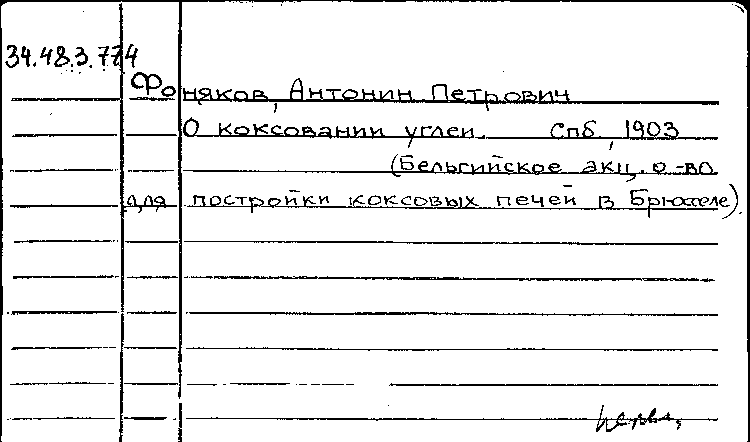 34.48.3.774
Фоняков, Антонин Петрович
О коксовании углей. Спб, 1903
(Бельгийское акц. о-во
для постройки коксовых печей в Брюсселе).